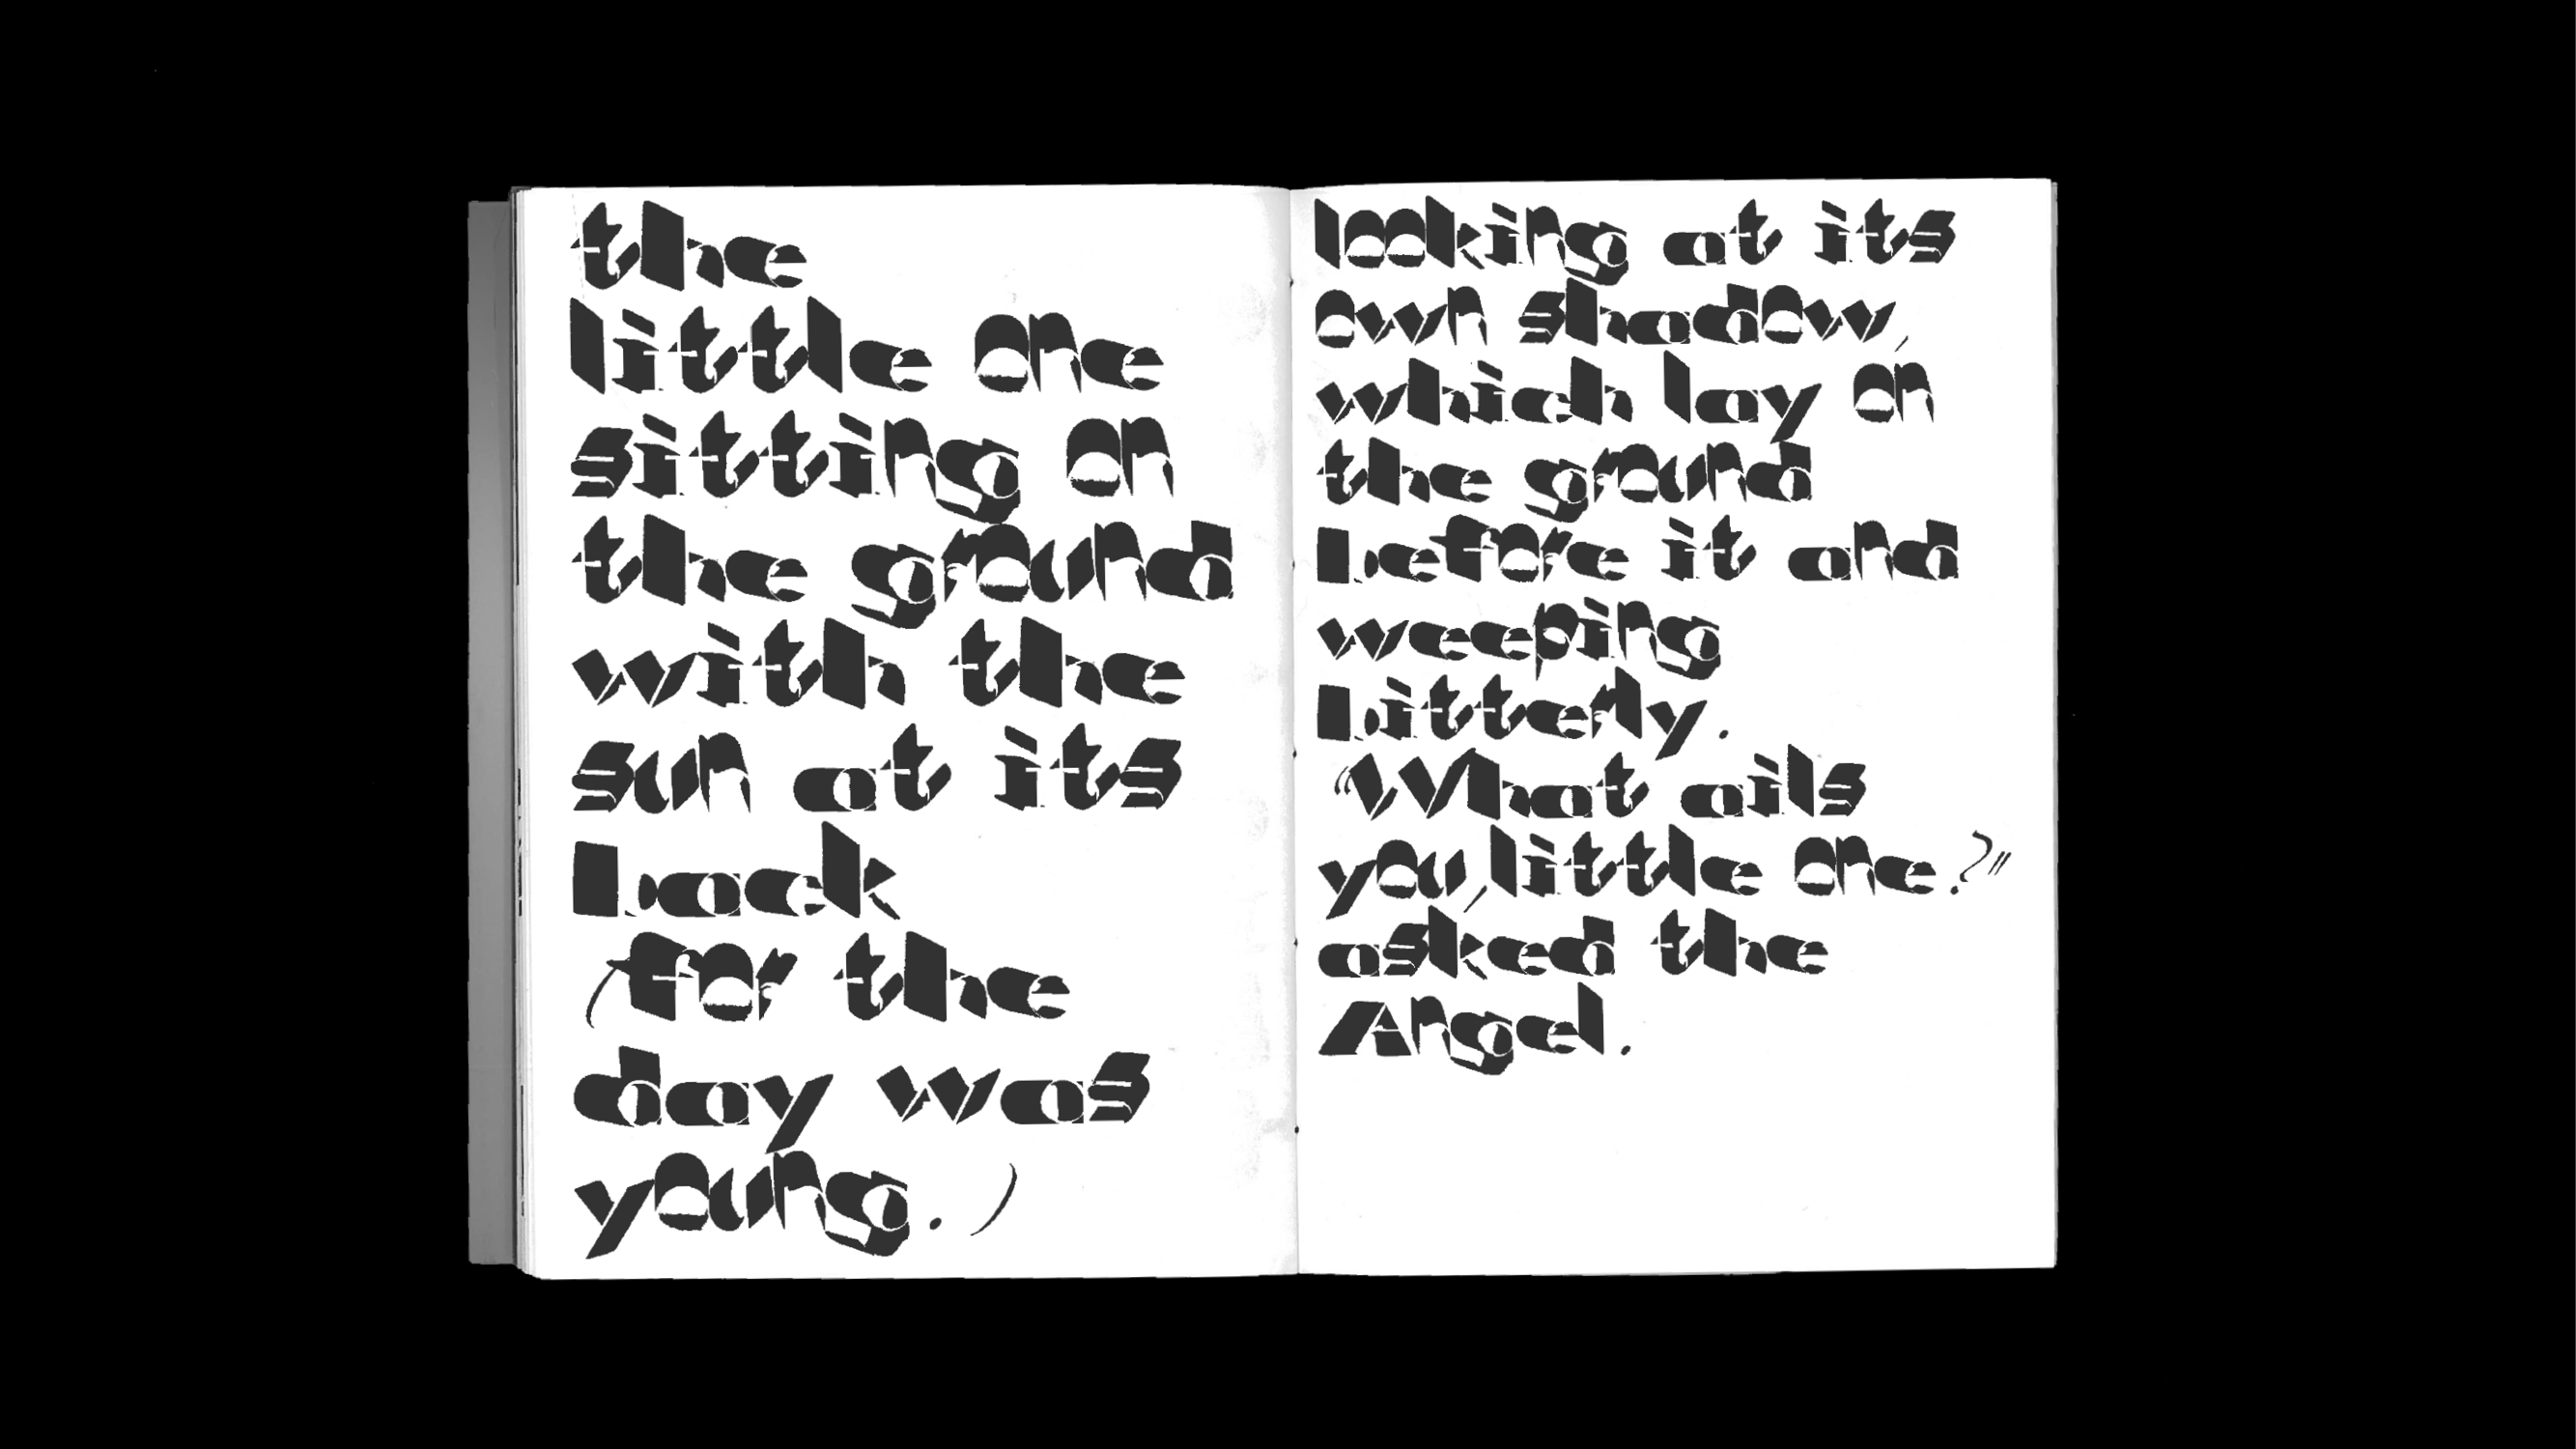 the
little one
sitting on
the ground
with the
sun at its
back
(for the
day was
young.)
looking at its
own shadow,
which lay on
the ground
before it and
weeping
bitterly.
"What ails
you, little one?"
asked the
Angel.